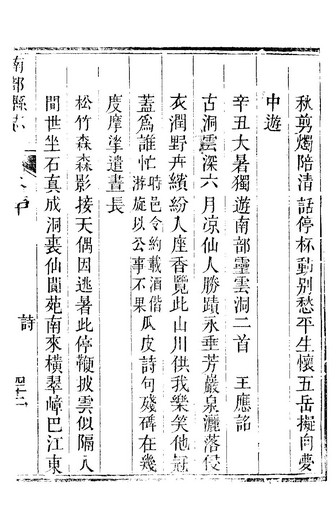 秋剪燭陪清話停杯動别愁平生懷五岳擬向夢
中遊
辛丑大暑獨遊南部靈雲洞二首 王應詺
古洞雲深六月凉仙人勝蹟永垂芳巖泉灑落侵
衣潤野卉繽紛入座香覽此山川供我樂笑他冠
蓋爲誰忙時邑令約載酒偕游旋以公事不果瓜皮詩句殘碑在幾
度摩挲遣晝長
松竹森森影接天偶因逃暑此停鞭披雲似隔人
間世坐石真成洞裏仙閬苑南來橫翠嶂巴江東
南部縣志
詩